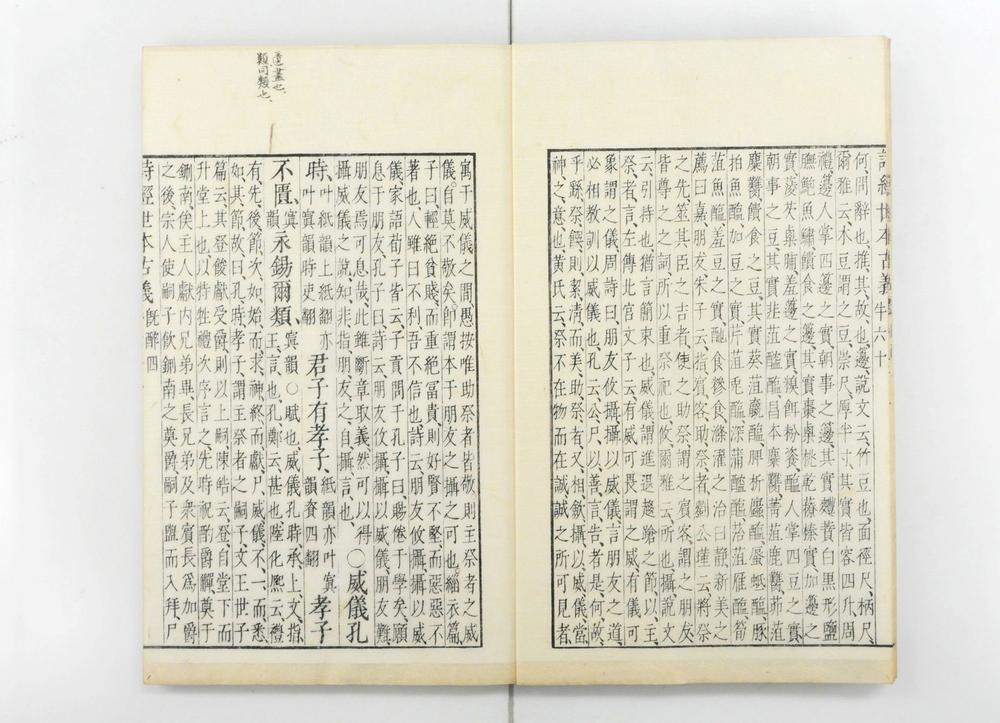 詩經世本古義 牛六十
何問辭也撰其故也籩說文云竹豆也面徑尺柄尺
爾雅云木豆謂之豆崇尺厚半寸其實皆容四升周
禮籩人掌四籩之實朝事之籩其實麷蕡白黑形鹽
膴鮑魚鱐饋食之籩其實棗㮚桃乾䕩榛實加籩之
實蔆芡㮚脯羞籩之實糗餌粉餈醢人掌四豆之實
朝事之豆其實韭菹醓醢昌本麋臡菁菹鹿臡茆菹
麋臡饋食之豆其實葵菹蠃醢脾析蠯醢蜃蚳醢豚
拍魚醢加豆之實芹菹兎醢深蒲醓醢箈菹雁醢筍
菹魚醢羞豆之實酏食糝食滌濯之治曰静新美之
薦曰嘉朋友朱子云指賓客助祭者劉公瑾云將祭
之先筮其臣之吉者使之助祭謂之賓客謂之朋友
皆尊之之詞所以重祭祀也攸爾雅云所也攝說文
云引持也猶言簡束也威儀謂進退趨蹌之節以主
祭者言左傳北宫文子云有威可畏謂之威有儀可
象謂之儀周詩曰朋友攸攝攝以威儀言朋友之道
必相教訓以威儀也孔云公尺以善言告者是何故
乎繇祭饌則絜清而美助祭者又相歛攝以威儀當
神之意也黃氏云祭不在物而在誠誠之所可見者
寓于威儀之間愚按唯助祭者皆敬則主祭者之威
儀自莫不敬矣卽謂本于朋友之攝之可也緇衣篇
子曰輕絶貧賤而重絶富貴則好賢不堅而惡惡不
著也人雖曰不利吾不信也詩云朋友攸攝攝以威
儀家語荀子皆云子貢問于孔子曰賜倦于學矣願
息于朋友孔子曰詩云朋友攸攝攝以威儀朋友難
朋友焉可息哉此雖斷章取義然可以得
攝威儀之說知非指朋友之自攝言也 ○威儀孔
時叶紙韻上紙翻亦叶寘韻時吏翻君子有孝子紙韻亦叶寘韻資四翻孝子
不匱寘韻永錫爾類寘韻○賦也威儀孔時承上文指
王言也孔鄭云甚也陸化熙云禮
有先後節次如始而求神終而獻尸威儀不一而悉
如其節故曰孔時孝子謂主祭者之嗣子文王世子
篇云其登餕獻受爵則以上嗣陳皓云登自堂下而
升堂上也以特牲禮次序言之先時祝酌爵觶奠于
鉶南俟主人獻内兄弟畢長兄弟及衆賓長爲加爵
之後宗人使嗣子飲鉶南之奠爵嗣子盥而入拜尸
詩經世本古義 旣醉 四
匱盡也
類同類也